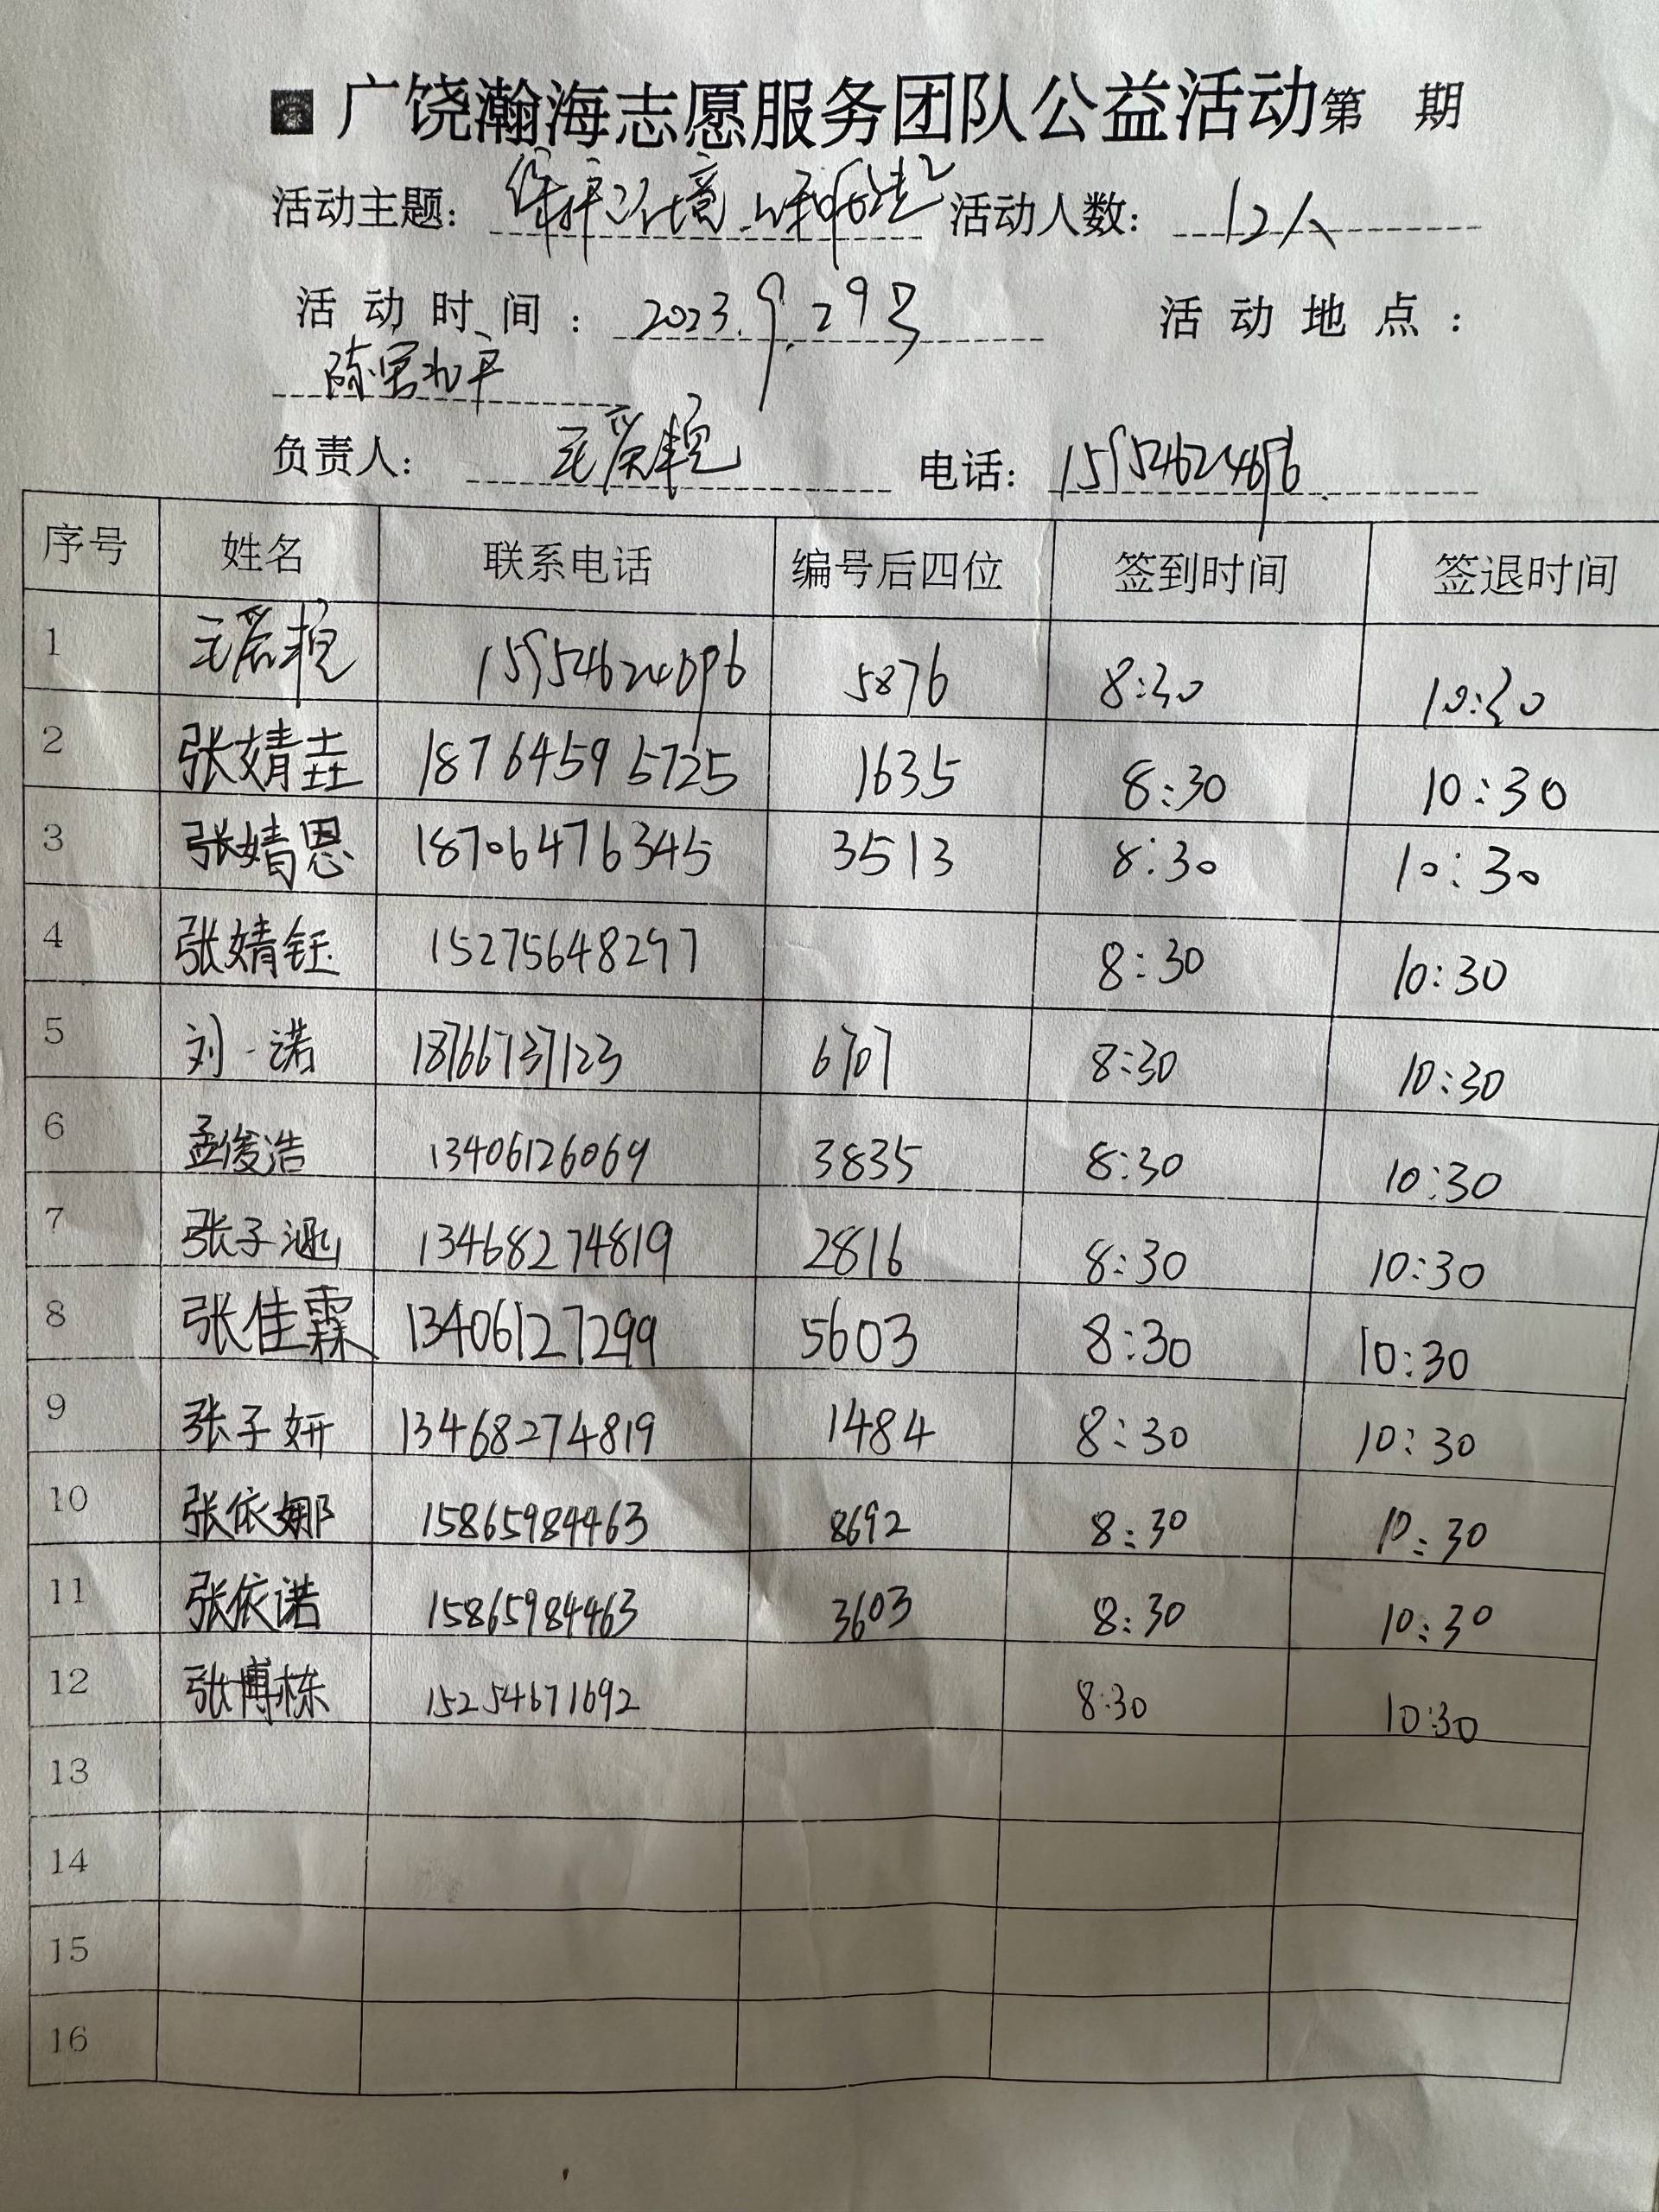 广饶瀚海志愿服务团队公益活动第 期
活动主题: 保护环境 活动人数: 12人
活动时间: 2023.9.29号 活动地点:
陈官
负责人: 电话: 15954624096
序号 姓名 联系电话 编号后四位 签到时间 签退时间
1 15954624096 5876 8:30 10:30
2 张婧垚 18764595725 1635 8:30 10:30
3 张婧恩 18706476345 3513 8:30 10:30
4 张婧钰 15275648297 8:30 10:30
5 刘一诺 18766737123 6707 8:30 10:30
6 孟俊浩 13406126069 3835 8:30 10:30
7 张子涵 13468274819 2816 8:30 10:30
8 张佳霖 13406127299 5603 8:30 10:30
9 张子妍 13468274819 1484 8:30 10:30
10 张依娜 15865984463 8692 8:30 10:30
11 张依诺 15865984463 3603 8:30 10:30
12 张博栋 15254671692 8:30 10:30
13
14
15
16